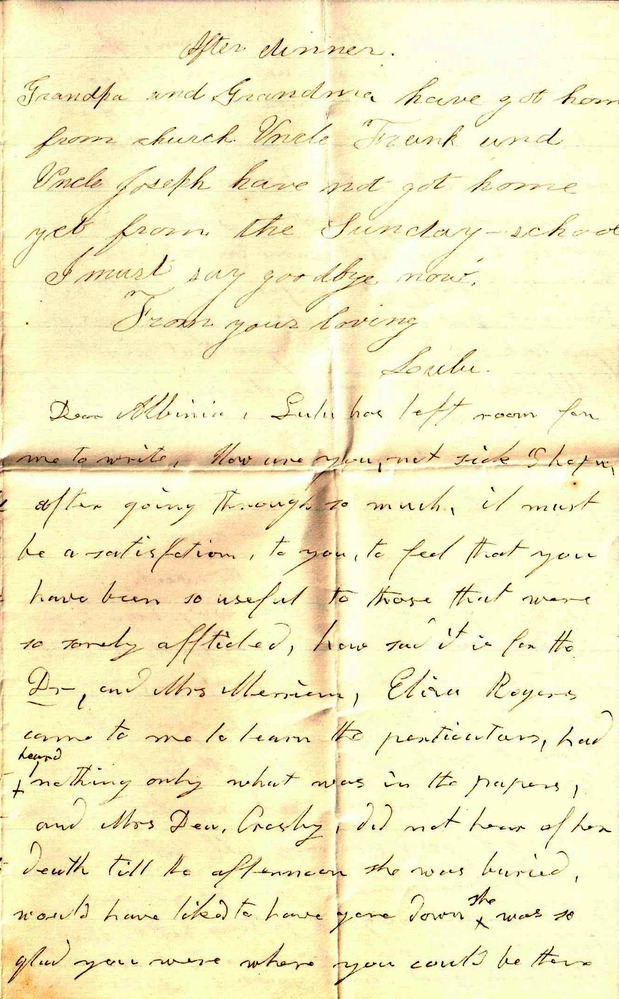 After dinner.
Grandpa and Grandma have got hom
from church Uncle Frank and
Uncle Joseph have not got home
yet from the Sunday-schoo
I must say goodbye now.
From your loving
Loulu.
Dear Albinia, Lulu has left room for
me to write, How are you, not sick I hope,
after going through so much, it must
be a satisfction, to you, to feel that you
have been so useful to those that were
so sorely afflicted, how sad it is for the
Dr, and Mrs Merriam, Eliza Rogers
came to me to learn the particulars, had
heard
nothing only what was in the papers,
and Mrs Dea. Crosby, did not hear of her
death till the afternoon she was buried,
would have liked to have gone down she was so
glad you were where you could be there